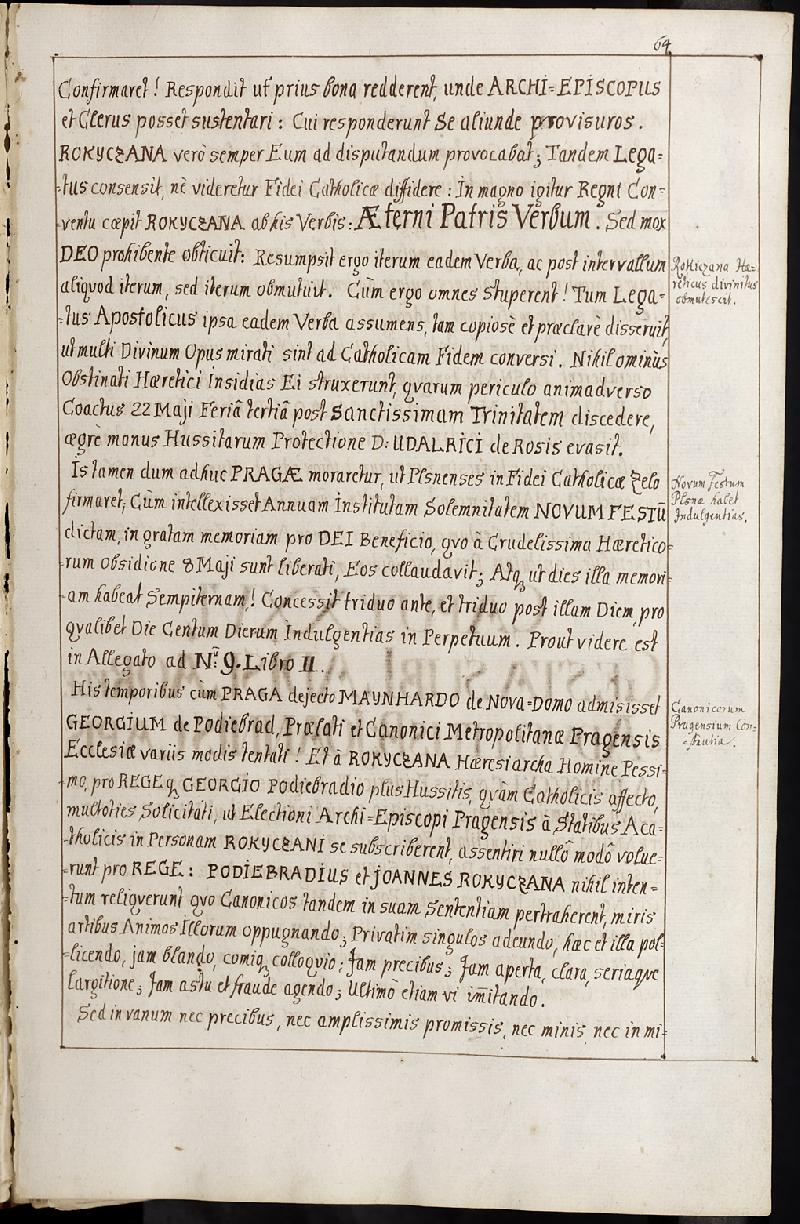 64
Confirmaret! Respondit ut prius bona redderent, unde ARCHI=EPISCOPUS
et Clerus posset sustentari: Cui responderunt Se aliunde provisuros.
ROKYCZANA verò semper Eum ad disputandum provocabat; Tandem Lega=
=tus consensit, nè videretur Fidei Catholicæ diffidere: In magno igitur Regni Con=
ventu cœpit ROKYCZANA ab his Verbis: Æterni Patris Verbum. Sed mox
DEO prohibente obticuit: Resumpsit ergo iterum eadem Verba, ac post intervallum
aliquod iterum, sed iterum obmutuit. Cùm ergo omnes stuperent! Tum Lega=
=tus Apostolicus ipsa eadem Verba assumens, tam copiosè et præclarè disseruit,
ut multi Divinum Opus mirati sint ad Catholicam Fidem conversi. Nihil ominùs
Obstinati Hæretici Insidias Ei struxerunt, qvarum periculo animadverso
Coactus 22 Maji Feriâ tertiâ post Sanctissimam Trinitatem discedere,
ægrè manus Hussitarum Protectione D: UDALRICI de Rosis evasit.
Is tamen dum adhuc PRAGÆ moraretur, ut Plsnenses in Fidei Catholicæ Zelo
firmaret; Cùm intellexisset Annuam Institutam Solemnitatem NOVUM FESTŪ
dictam, in gratam memoriam pro DEI Beneficio, qvo à Crudelissima Hæretico=
=rum obsidione 8 Maji sunt liberati, Eos collaudavit; Atq, ut dies illa memori=
=am habeat Sempiternam! Concessit triduo ante, et triduo post illam Diem, pro
qvalibet Die Centum Dierum Indulgentias in Perpetuum. Prout videre est
in Allegato ad Nr̄ 9. Libro II.
His temporibus cùm PRAGA dejecto MAYNHARDO de Nova=Domo admisisset
GEORGIUM de Podiebrad, Prælati et Canonici Metropolitanæ Pragensis
Ecclesiæ variis modis tentati! Et à ROKYCZANA Hæresiarcha Homine Pessi=
=mo, pro REGE q, GEORGIO Podiebradio plus Hussitis, qvàm Catholicis affecto,
multoties Solicitati, ut Electioni Archi=Episcopi Pragensis à Statibus Aca=
=tholicis in Personam ROKYCZANI se subscriberent, assentiri nullô modô volue=
=runt pro REGE: PODIEBRADIUS et JOANNES ROKYCZANA nihil inten=
=tum reliqverunt qvo Canonicos tandem in suam Sententiam pertraherent, miris
artibus Animos Illorum oppugnando; Privatim singulos adeundo, hæc et illa pol=
=licendo, jam blando, comiq, colloqvio; Jam precibus; Jam aperta, clara, seriaqve
largitione; Jam astu et fraude agendo; Ultimò etiam vi im̄itando.
Sed in vanum nec precibus, nec amplissimis promissis, nec minis, nec in mi=
Rokiczana Hæ=
reticus divinitus
obmutescit.
Novum Festum
Plsnæ habet
Indulgentias.
Canonicorum
Pragensium Con=
=stantia.